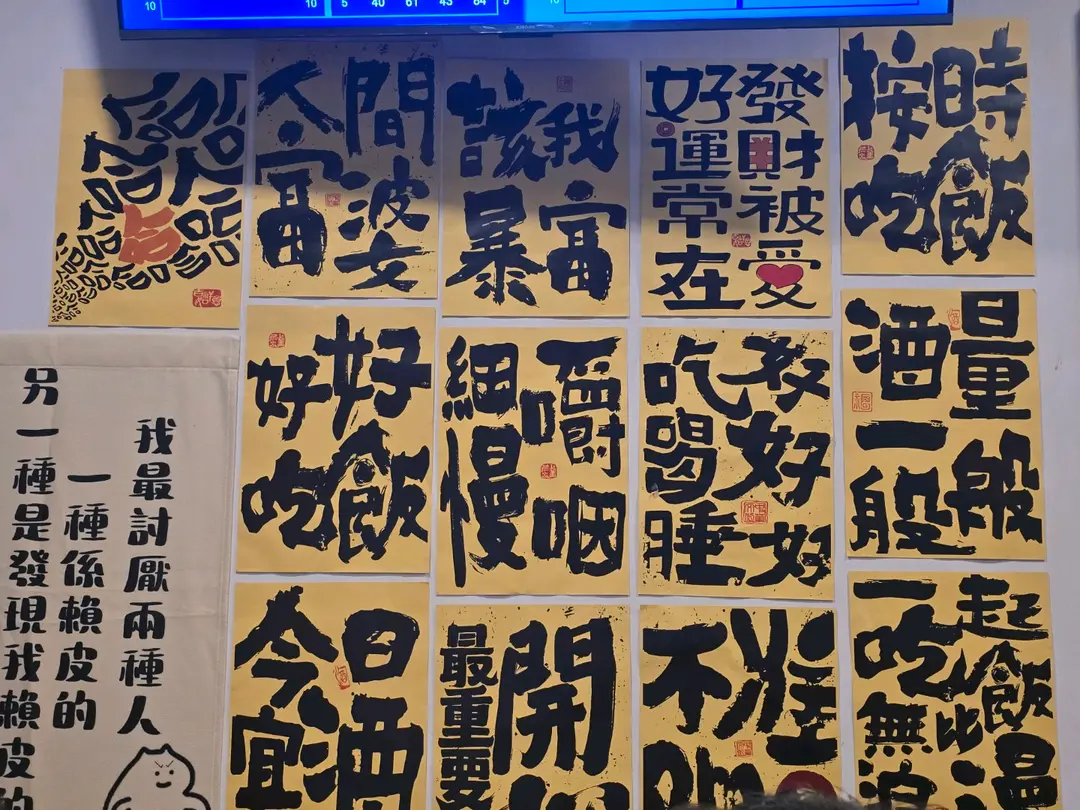 10 10 5 40 61 43 84 5 10
人間
富婆
該我
暴富
發財被愛
好運常在
按時
吃飯
好好
吃飯
細嚼
慢咽
吃好
喝好
睡好
酒量
一般般
今日
宜酒
開
最重要
不
一起
吃飯
無比
我最討厭兩種人
一種係賴皮的
另一種是發現我賴皮的